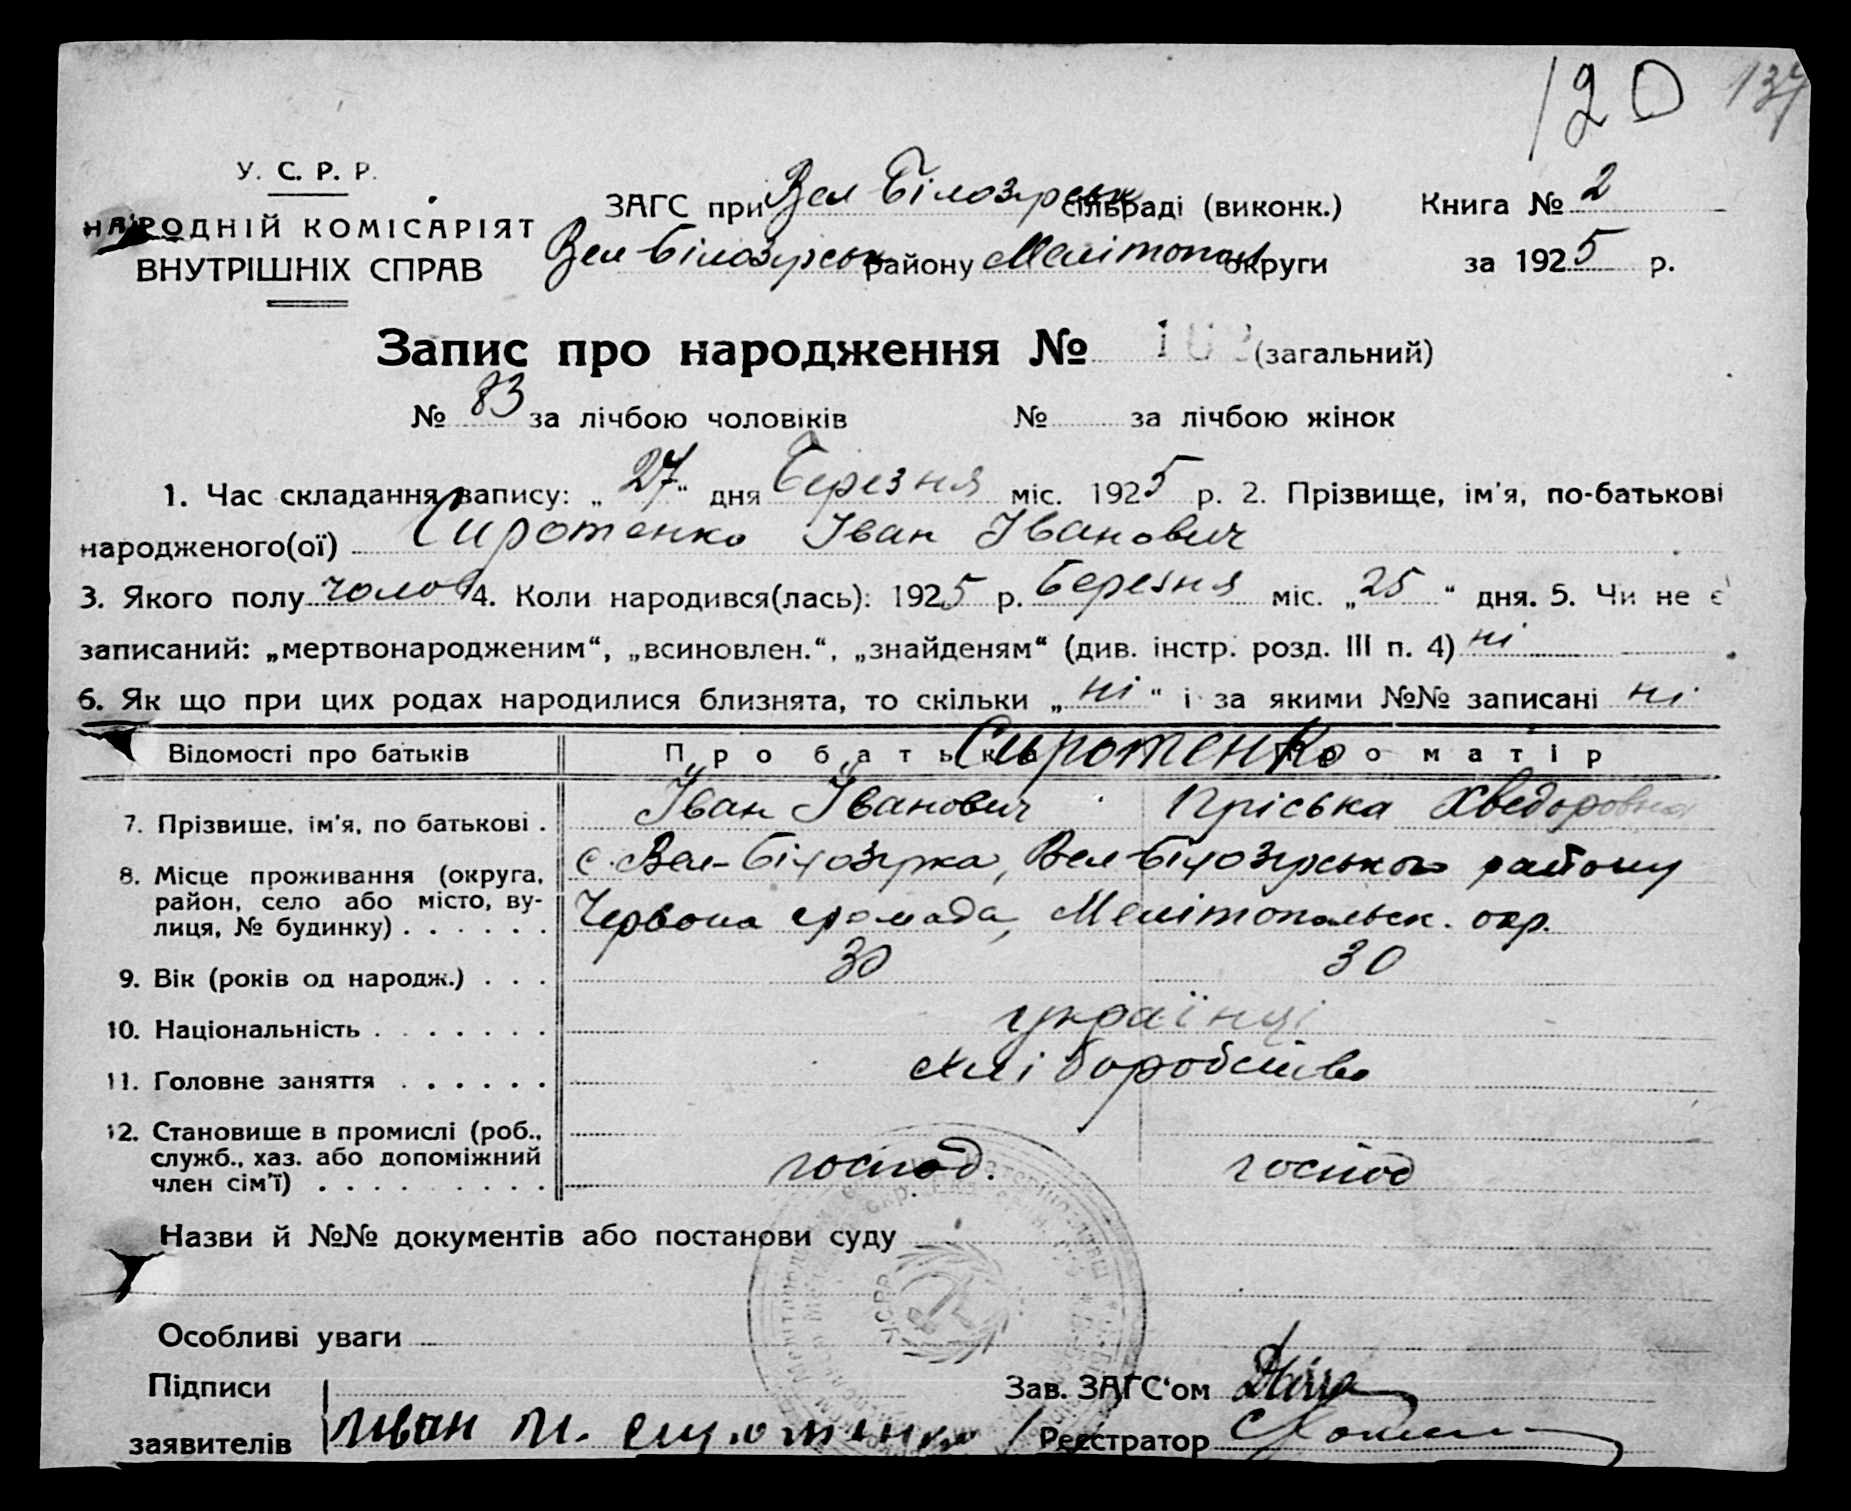 120 137
У. С. Р. Р.
НАРОДНІЙ КОМІСАРІЯТ
ВНУТРІШНІХ СПРАВ
ЗАГС при Вел Білозірськ сільраді (виконк.) Книга № 2
Вел Білозірськ району Мелітопол округи за 1925 р.
Запис про народження № (загальний)
№ 83 за лічбою чоловіків № за лічбою жінок
1. Час складання запису: „27“ дня Березня міс. 1925 р. 2. Прізвище, ім'я, по-батькові
народженого(ої) Сиротенко Іван Іванович
3. Якого полу чолов 4. Коли народився(лась): 1925 р. Березня міс. „25“ дня. 5. Чи не є
записаний: „мертвонародженим“, „всиновлен.“, „знайденям“ (див. інстр. розд. III п. 4) ні
6. Як що при цих родах народилися близнята, то скільки „ні“ і за якими №№ записані ні
Відомості про батьків Про батька Сиротенко Про матір
7. Прізвище, ім'я, по батькові . Іван Іванович Пріська Хведоровна
8. Місце проживання (округа, с. Вел-Білозірка, Вел Білозірського району
район, село або місто, ву-
лиця, № будинку) . . . . . . Червона громада, Мелітопольск. окр.
9. Вік (років од народж.) . . . 30 30
10. Національність . . . . . . . українці
11. Головне заняття . . . . . . хліборобство
12. Становище в промислі (роб.,
служб., хаз. або допоміжний господ. господ
член сім'ї) . . . . . . . . .
Назви й №№ документів або постанови суду
УСРР
Особливі уваги
Підписи Зав. ЗАГС'ом
заявителів Иван И. Сиротенко Реєстратор